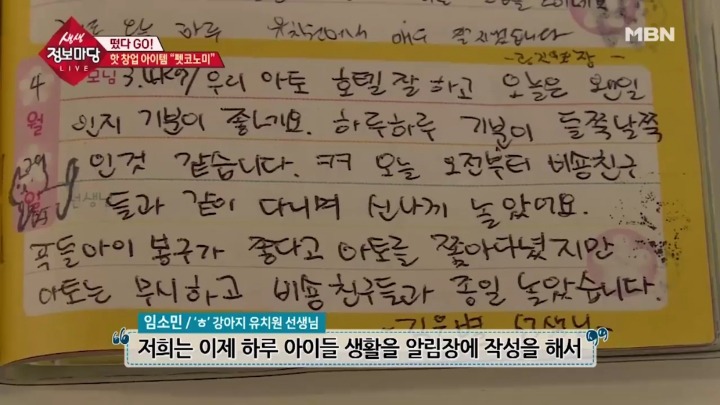 생생
정보마당
LIVE
떴다 GO!
핫 창업 아이템 "펫코노미"
MBN
오늘 하루 유치원에서 매우 잘 지냈습니다
4 모님 3.4kg / 우리 아토 호텔 잘 하고 오늘은 웬일
월 인지 기분이 좋네요. 하루하루 기분이 들쭉날쭉
29 인것 같습니다. ㅋㅋ 오늘 오전부터 비숑친구
선생님 들과 같이 다니며 신나게 놀았어요.
푸들아이 봉구가 좋다고 아토를 쫓아다녔지만
아토는 무시하고 비숑친구들과 종일 놀았습니다.
선생님
임소민 / 'ㅎ' 강아지 유치원 선생님
저희는 이제 하루 아이들 생활을 알림장에 작성을 해서